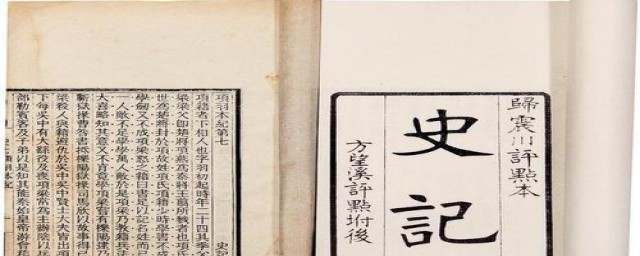 歸震川評點本
史記
方望溪評點坿後
項羽本紀第七 史記
項籍者下相人也字羽初起時年二十四其季父
梁梁父即楚將項燕為秦將王翦所戮者也項氏
世為楚將封於項故姓項氏項籍少時學書不成
學劍又不成項梁怒之籍曰書足以記名姓而已
一人敵不足學學萬人敵於是項梁乃教籍兵法
大喜略知其意又不肯竟學項梁嘗有櫟陽逮乃
蘄獄掾曹咎書抵櫟陽獄掾司馬欣以故事得已
梁殺人與籍避仇於吳中吳中賢士大夫皆出項
下每吳中有大繇役及喪項梁常為主辦陰以兵
部勒賓客及子弟以是知其能秦始皇帝游會稽